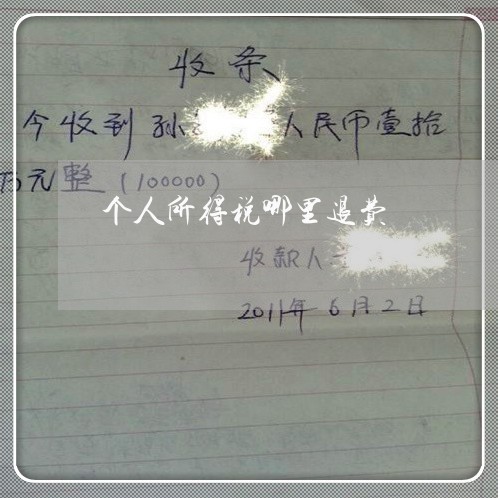 收条
今收到孙 人民币壹拾
万元整(100000)
个人所得税哪里退费
收款人
2011年6月2日